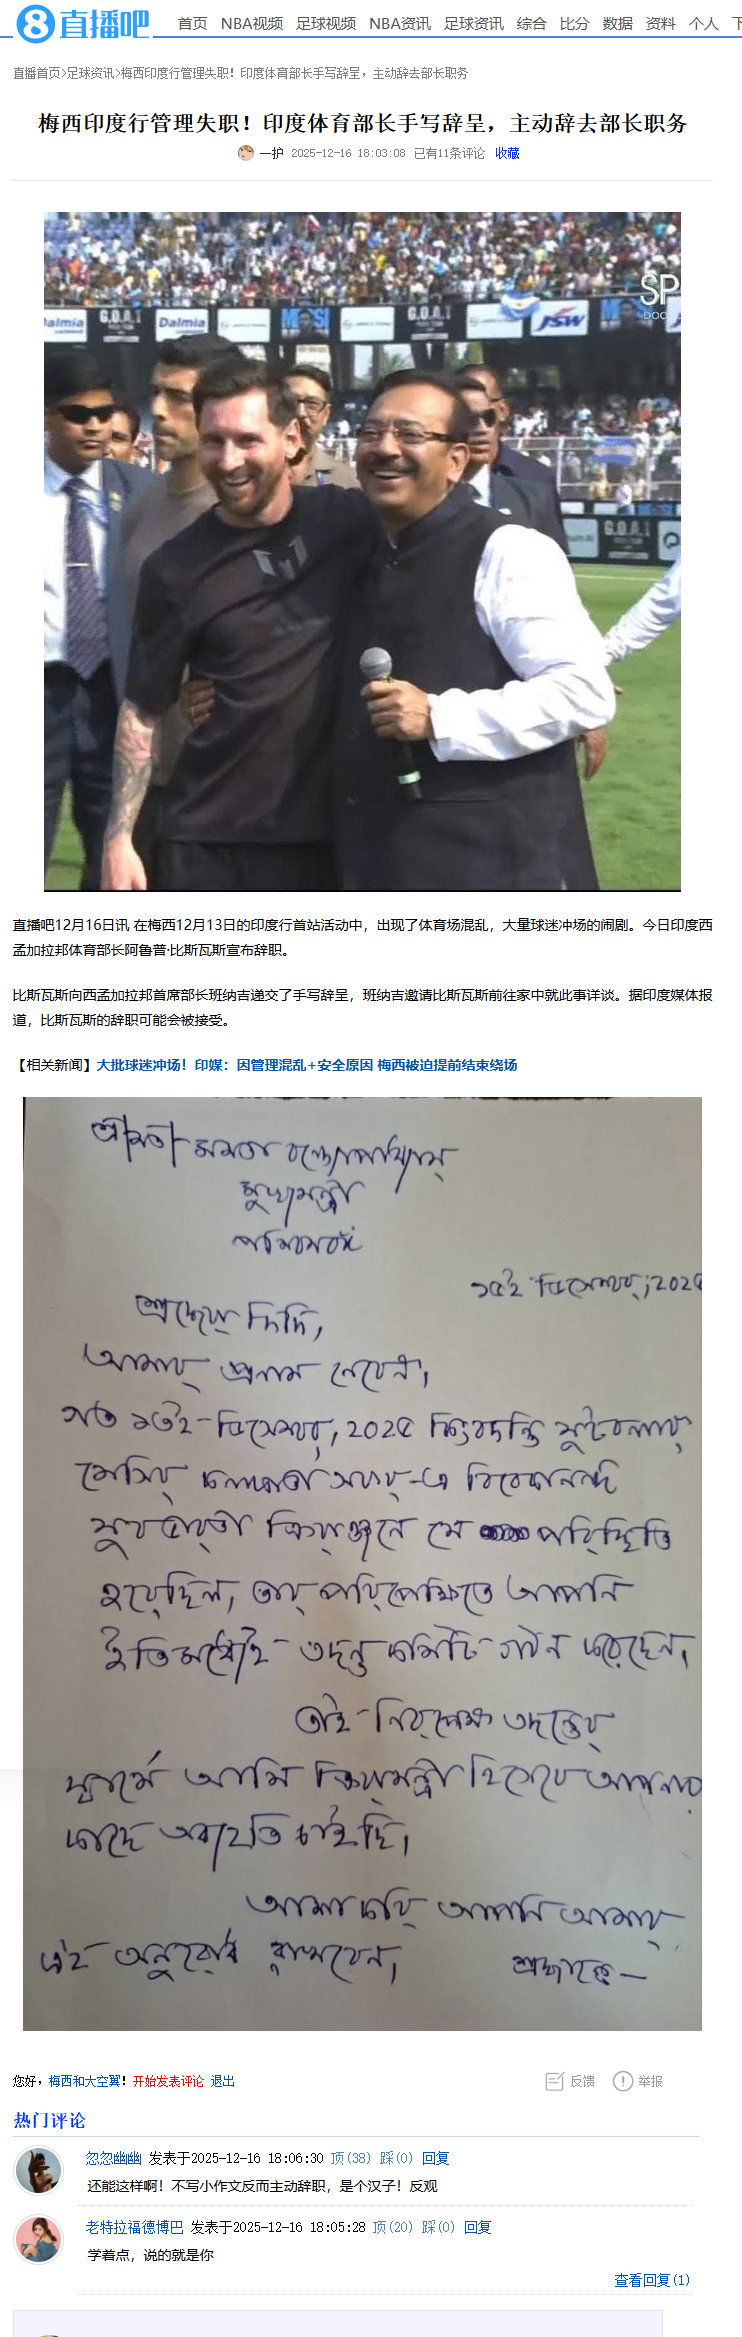 8 直播吧
首页 NBA视频 足球视频 NBA资讯 足球资讯 综合 比分 数据 资料 个人
直播首页>足球资讯>梅西印度行管理失职！印度体育部长手写辞呈，主动辞去部长职务
梅西印度行管理失职！印度体育部长手写辞呈，主动辞去部长职务
一护 2025-12-16 18:03:08 已有11条评论 收藏
SP
DOC
Dalmia G.O.A.T Dalmia G.O.A.T JSW
G.O.A.T
直播吧12月16日讯 在梅西12月13日的印度行首站活动中，出现了体育场混乱，大量球迷冲场的闹剧。今日印度西
孟加拉邦体育部长阿鲁普·比斯瓦斯宣布辞职。
比斯瓦斯向西孟加拉邦首席部长班纳吉递交了手写辞呈，班纳吉邀请比斯瓦斯前往家中就此事详谈。据印度媒体报
道，比斯瓦斯的辞职可能会被接受。
【相关新闻】大批球迷冲场！印媒：因管理混乱+安全原因 梅西被迫提前结束绕场
শ্রীমতী মমতা বন্দ্যোপাধ্যায়
মুখ্যমন্ত্রী
পশ্চিমবঙ্গ
১৫ই ডিসেম্বর, ২০২৫
শ্রদ্ধেয় দিদি,
আমার প্রনাম নেবেন।
গত ১৩ই ডিসেম্বর, ২০২৫ কিংবদন্তি ফুটবলার
মেসির কলকাতা সফর-এ বিবেকানন্দ
যুবভারতী ক্রীড়াঙ্গনে যে পরিস্থিতি
হয়েছিল, তার পরিপ্রেক্ষিতে আপনি
ইতিমধ্যেই তদন্ত কমিটি গঠন করেছেন।
তাই নিরপেক্ষ তদন্তের
স্বার্থে আমি ক্রীড়ামন্ত্রী হিসেবে আপনার
কাছে অব্যহতি চাইছি।
আশা করি আপনি আমার
এই অনুরোধ রাখবেন। শ্রদ্ধান্তে—
您好，梅西和大空翼！开始发表评论 退出
反馈 举报
热门评论
忽忽幽幽 发表于2025-12-16 18:06:30 顶(38) 踩(0) 回复
还能这样啊！不写小作文反而主动辞职，是个汉子！反观
老特拉福德博巴 发表于2025-12-16 18:05:28 顶(20) 踩(0) 回复
学着点，说的就是你
查看回复(1)